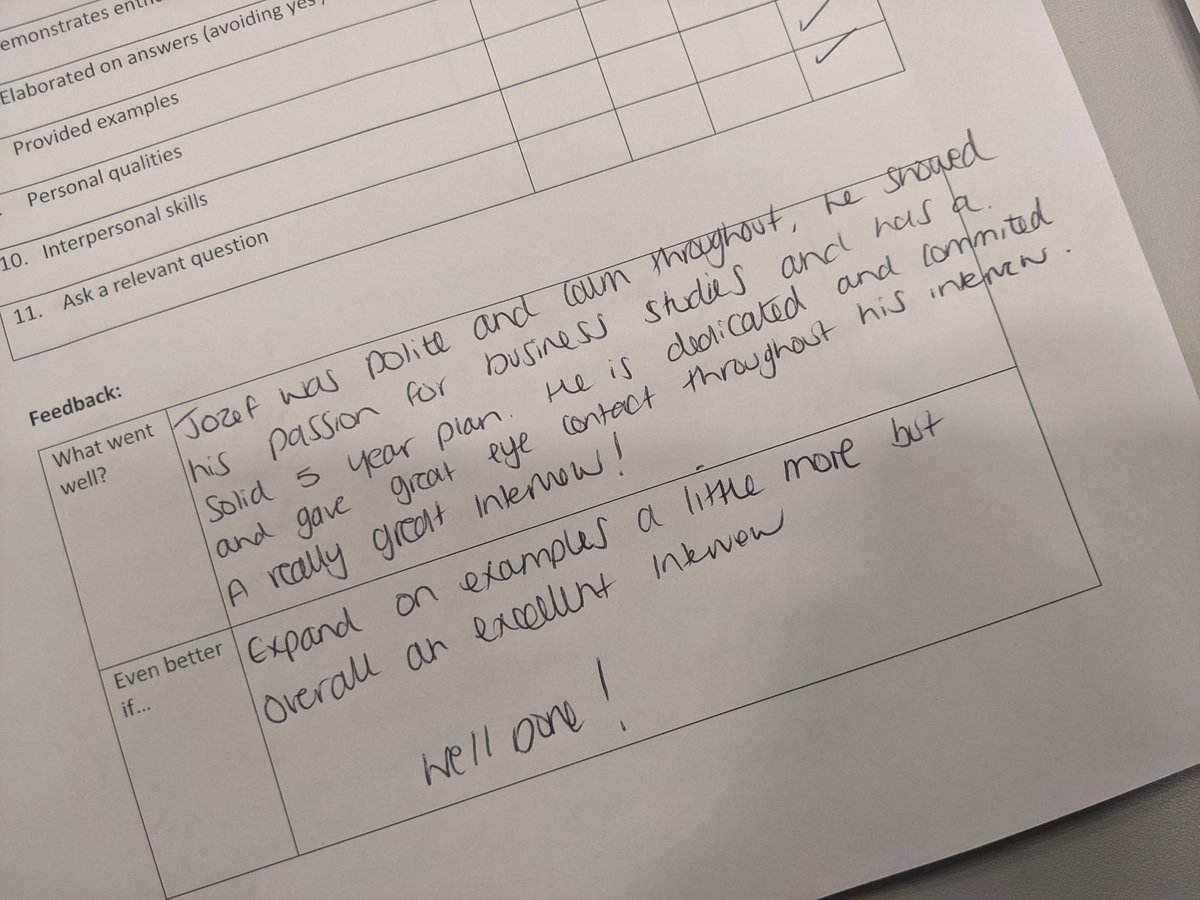 emonstrates enth
Elaborated on answers (avoiding yes
Provided examples
Personal qualities
10. Interpersonal skills
11. Ask a relevant question
Feedback:
What went
well?
Jozef was polite and calm throughout, he showed
his passion for business studies and has a
solid 5 year plan. He is dedicated and commited
and gave great eye contact throughout his interview.
A really great interview!
Even better
if...
Expand on examples a little more but
overall an excellent interview
Well Done!